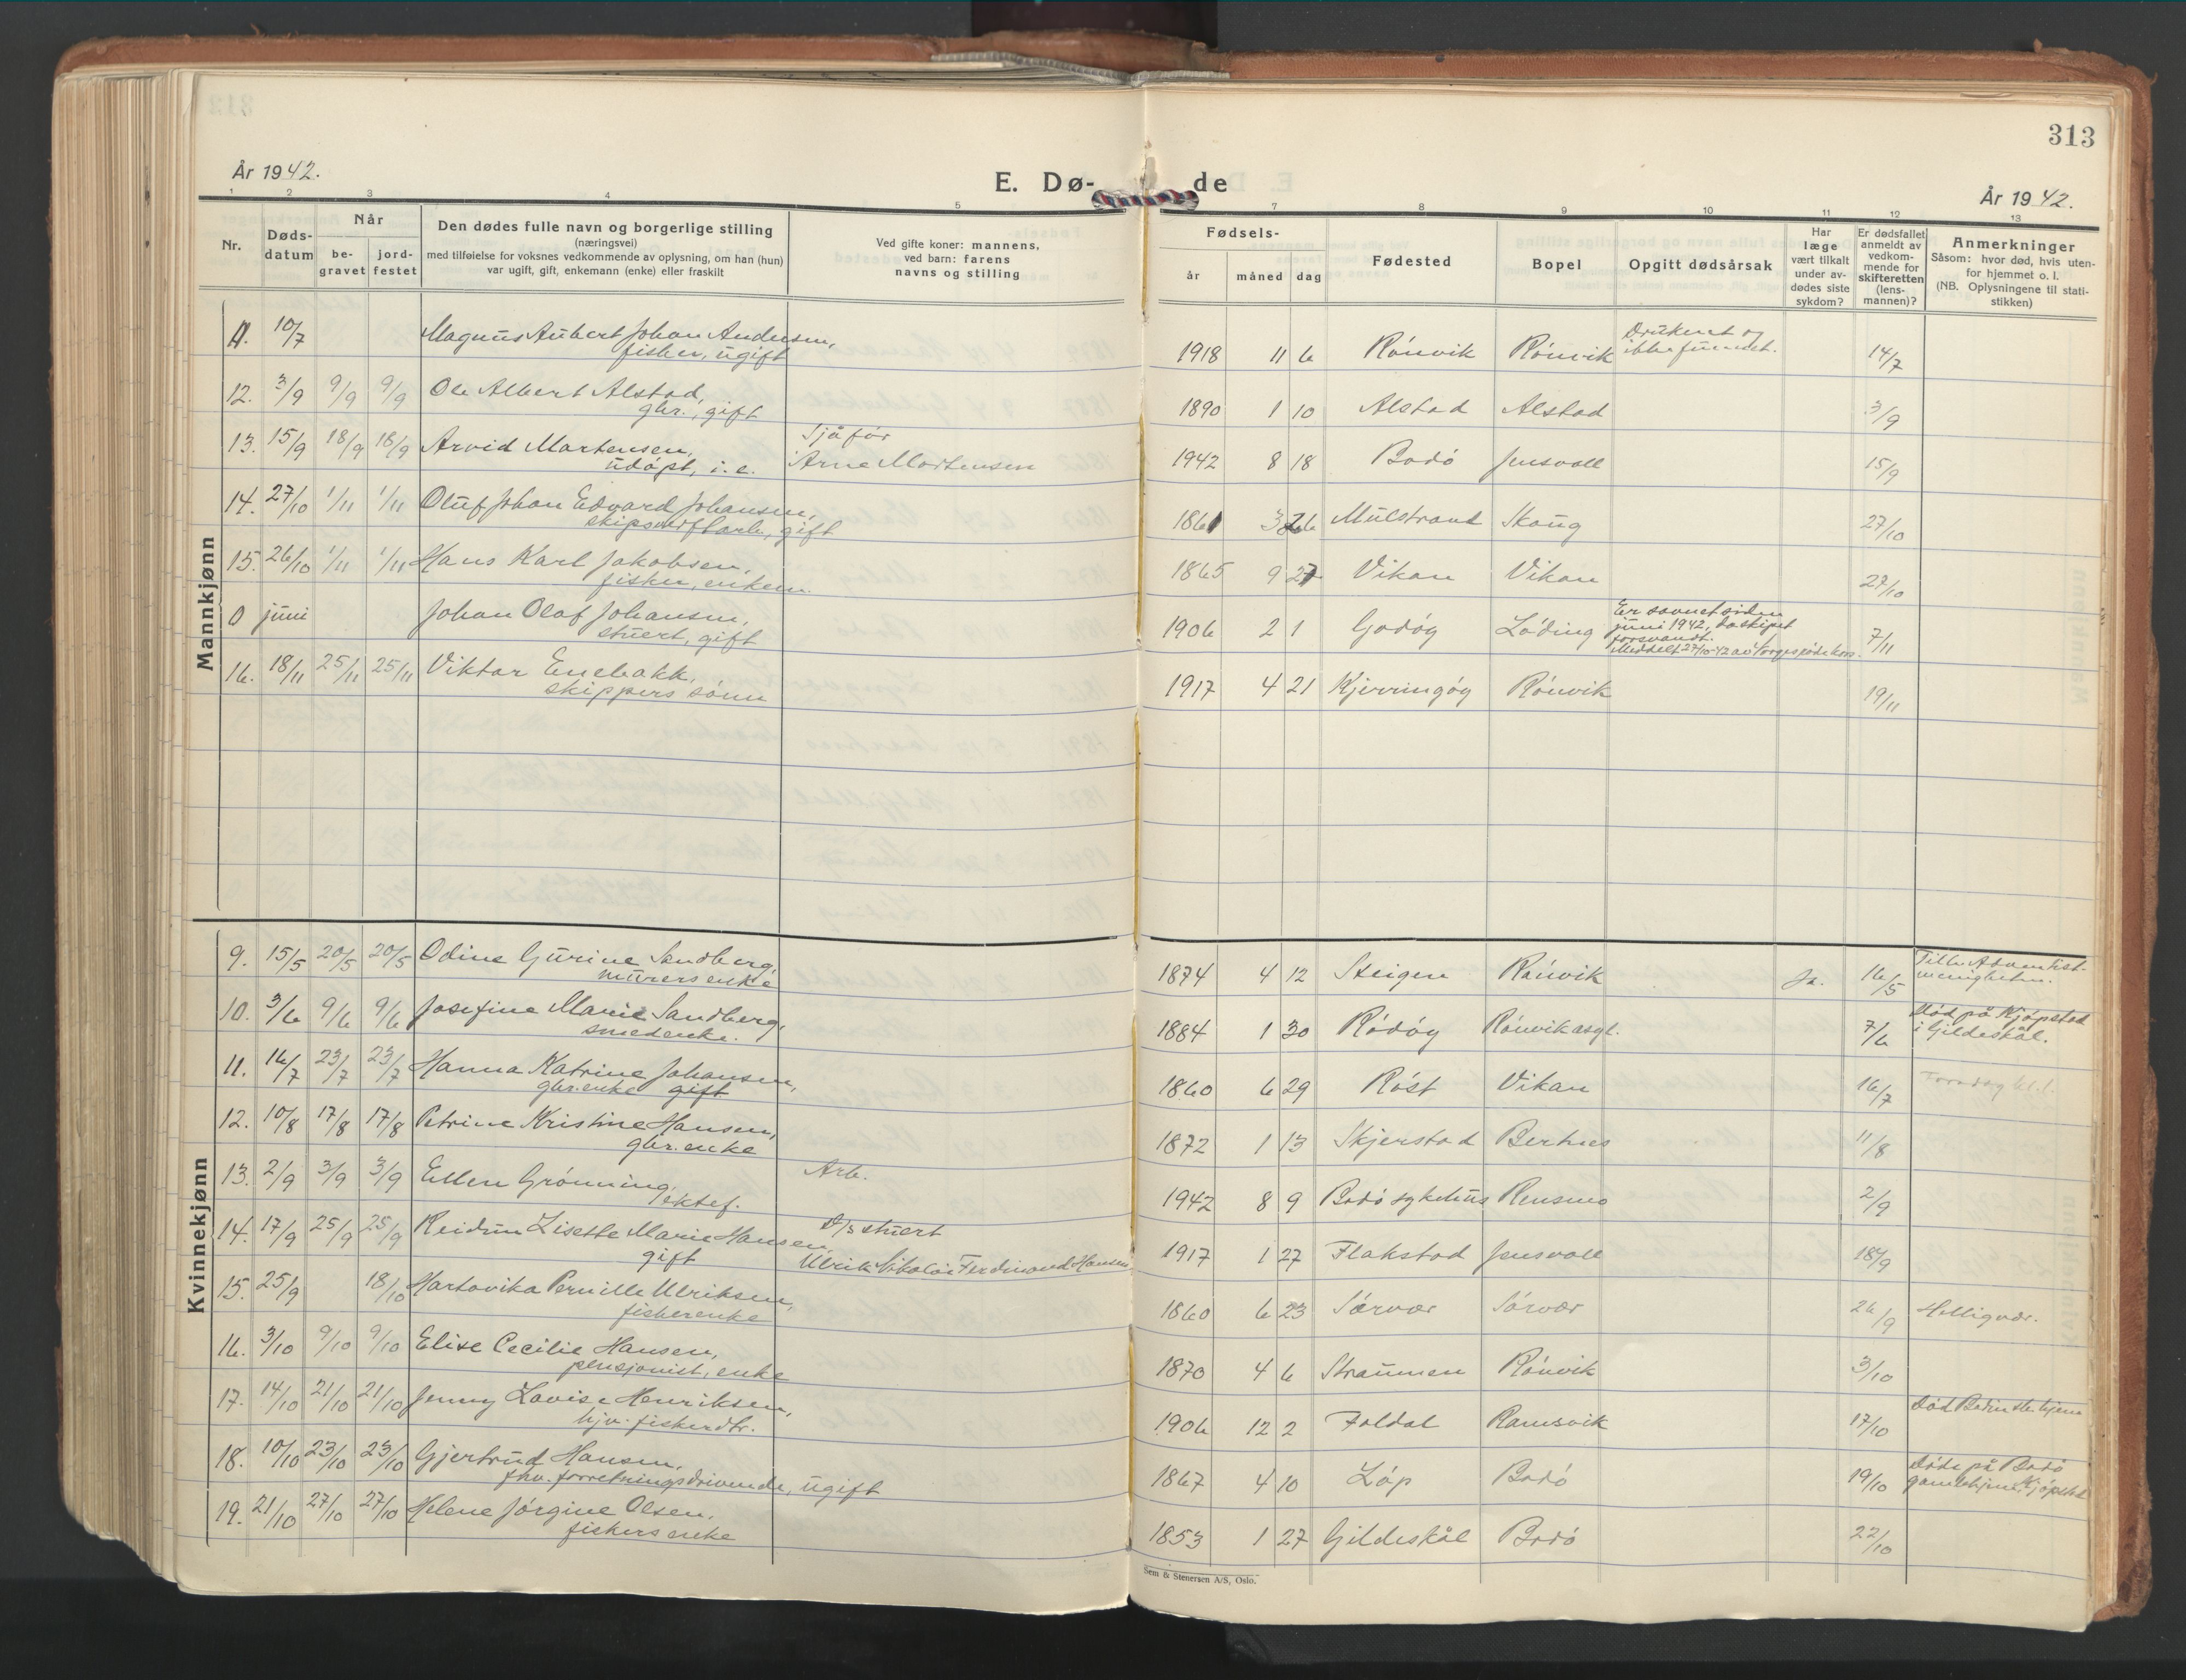 313
År 1942.
E. Dø-
de
År 1942.
1 2 3 4 5 7 8 9 10 11 12 13
Nr.
Døds-
datum
Når
be-
gravet
jord-
festet
Den dødes fulle navn og borgerlige stilling
(næringsvei)
med tilføielse for voksnes vedkommende av oplysning, om han (hun)
var ugift, gift, enkemann (enke) eller fraskilt
Ved gifte koner: mannens,
ved barn: farens
navns og stilling
Fødsels-
år måned dag
Fødested
Bopel
Opgitt dødsårsak
Har
læge
vært tilkalt
under av-
dødes siste
sykdom?
Er dødsfallet
anmeldt av
vedkom-
mende for
skifteretten
(lens-
mannen)?
Anmerkninger
Såsom: hvor død, hvis uten-
for hjemmet o. l.
(NB. Oplysningene til stati-
stikken)
Mannkjønn
11. 10/7 Magnus Aubert Johan Andersen,
fisker, ugift
1918 11 6 Rønvik Rønvik Druknet og
ikke funnet. 14/7
12. 3/9 9/9 9/9 Ole Albert Alstad,
gbr., gift
1890 1 10 Alstad Alstad 3/9
13. 15/9 18/9 18/9 Arvid Martensen,
udøpt, i. e.
Sjåfør
Arne Mortensen
1942 8 18 Bodø Jensvoll 15/9
14. 27/10 1/11 1/11 Oluf Johan Edvard Johansen,
skipsverftarb., gift
1861 3 26 Mulstrand Skaug 27/10
15. 26/10 1/11 1/11 Hans Karl Jakobsen,
fisker, enkem.
1865 9 27 Vikan Vikan 27/10
0 juni Johan Olaf Johansen,
stuert, gift
1906 2 1 Godøy Løding Er savnet siden
juni 1942, da skipet
forsvandt.
Meddelt 27/10-42 av Norges røde kors. 7/11
16. 18/11 25/11 25/11 Viktor Enebakk,
skippers sønn
1917 4 21 Kjerringøy Rønvik 19/11
Kvinnekjønn
9. 15/5 20/5 20/5 Odine Gurine Sandberg,
murers enke
1874 4 12 Steigen Rønvik Ja. 16/5 Tilh. Adventist-
menigheten.
10. 3/6 9/6 9/6 Josefine Marie Sandberg,
smedenke.
1884 1 30 Rødøy Rønvik asyl. 7/6 Død på Kjøpstad
i Gildeskål.
11. 16/7 23/7 23/7 Hanna Katrine Johansen,
gbr.enke gift
1860 6 29 Røst Vikan 16/7
12. 10/8 17/8 17/8 Petrine Kristine Hansen,
gbr.enke
1872 1 13 Skjerstad Bertnes 11/8
13. 2/9 3/9 3/9 Ellen Grønning,
ektef.
Arb.
1942 8 9 Bodø sykehus Rensmo 2/9
14. 17/9 25/9 25/9 Reidun Lisette Marie Hansen,
gift
D/S stuert
Ulrik Nikolai Ferdinand Hansen
1917 1 27 Flakstad Jensvoll 18/9
15. 25/9 18/10 Hartovika Pernille Ulriksen,
fiskerenke
1860 6 23 Sørvær Sørvær 26/9 Helligvær.
16. 3/10 9/10 9/10 Elise Cecilie Hansen,
pensjonist, enke
1870 4 6 Straumen Rønvik 3/10
17. 14/10 21/10 21/10 Jenny Lovise Henriksen,
hjv. fiskerdtr.
1906 12 2 Foldal Ramsvik 17/10
18. 10/10 23/10 23/10 Gjertrud Hansen,
fhv. forretningsdrivende, ugift
1867 4 10 Løp Bodø 19/10 Døde på Bodø
gamlehjem, Kjøpstad
19. 21/10 27/10 27/10 Helene Jørgine Olsen,
fiskers enke
1853 1 27 Gildeskål Bodø 22/10
Sem & Stenersen A/S, Oslo.